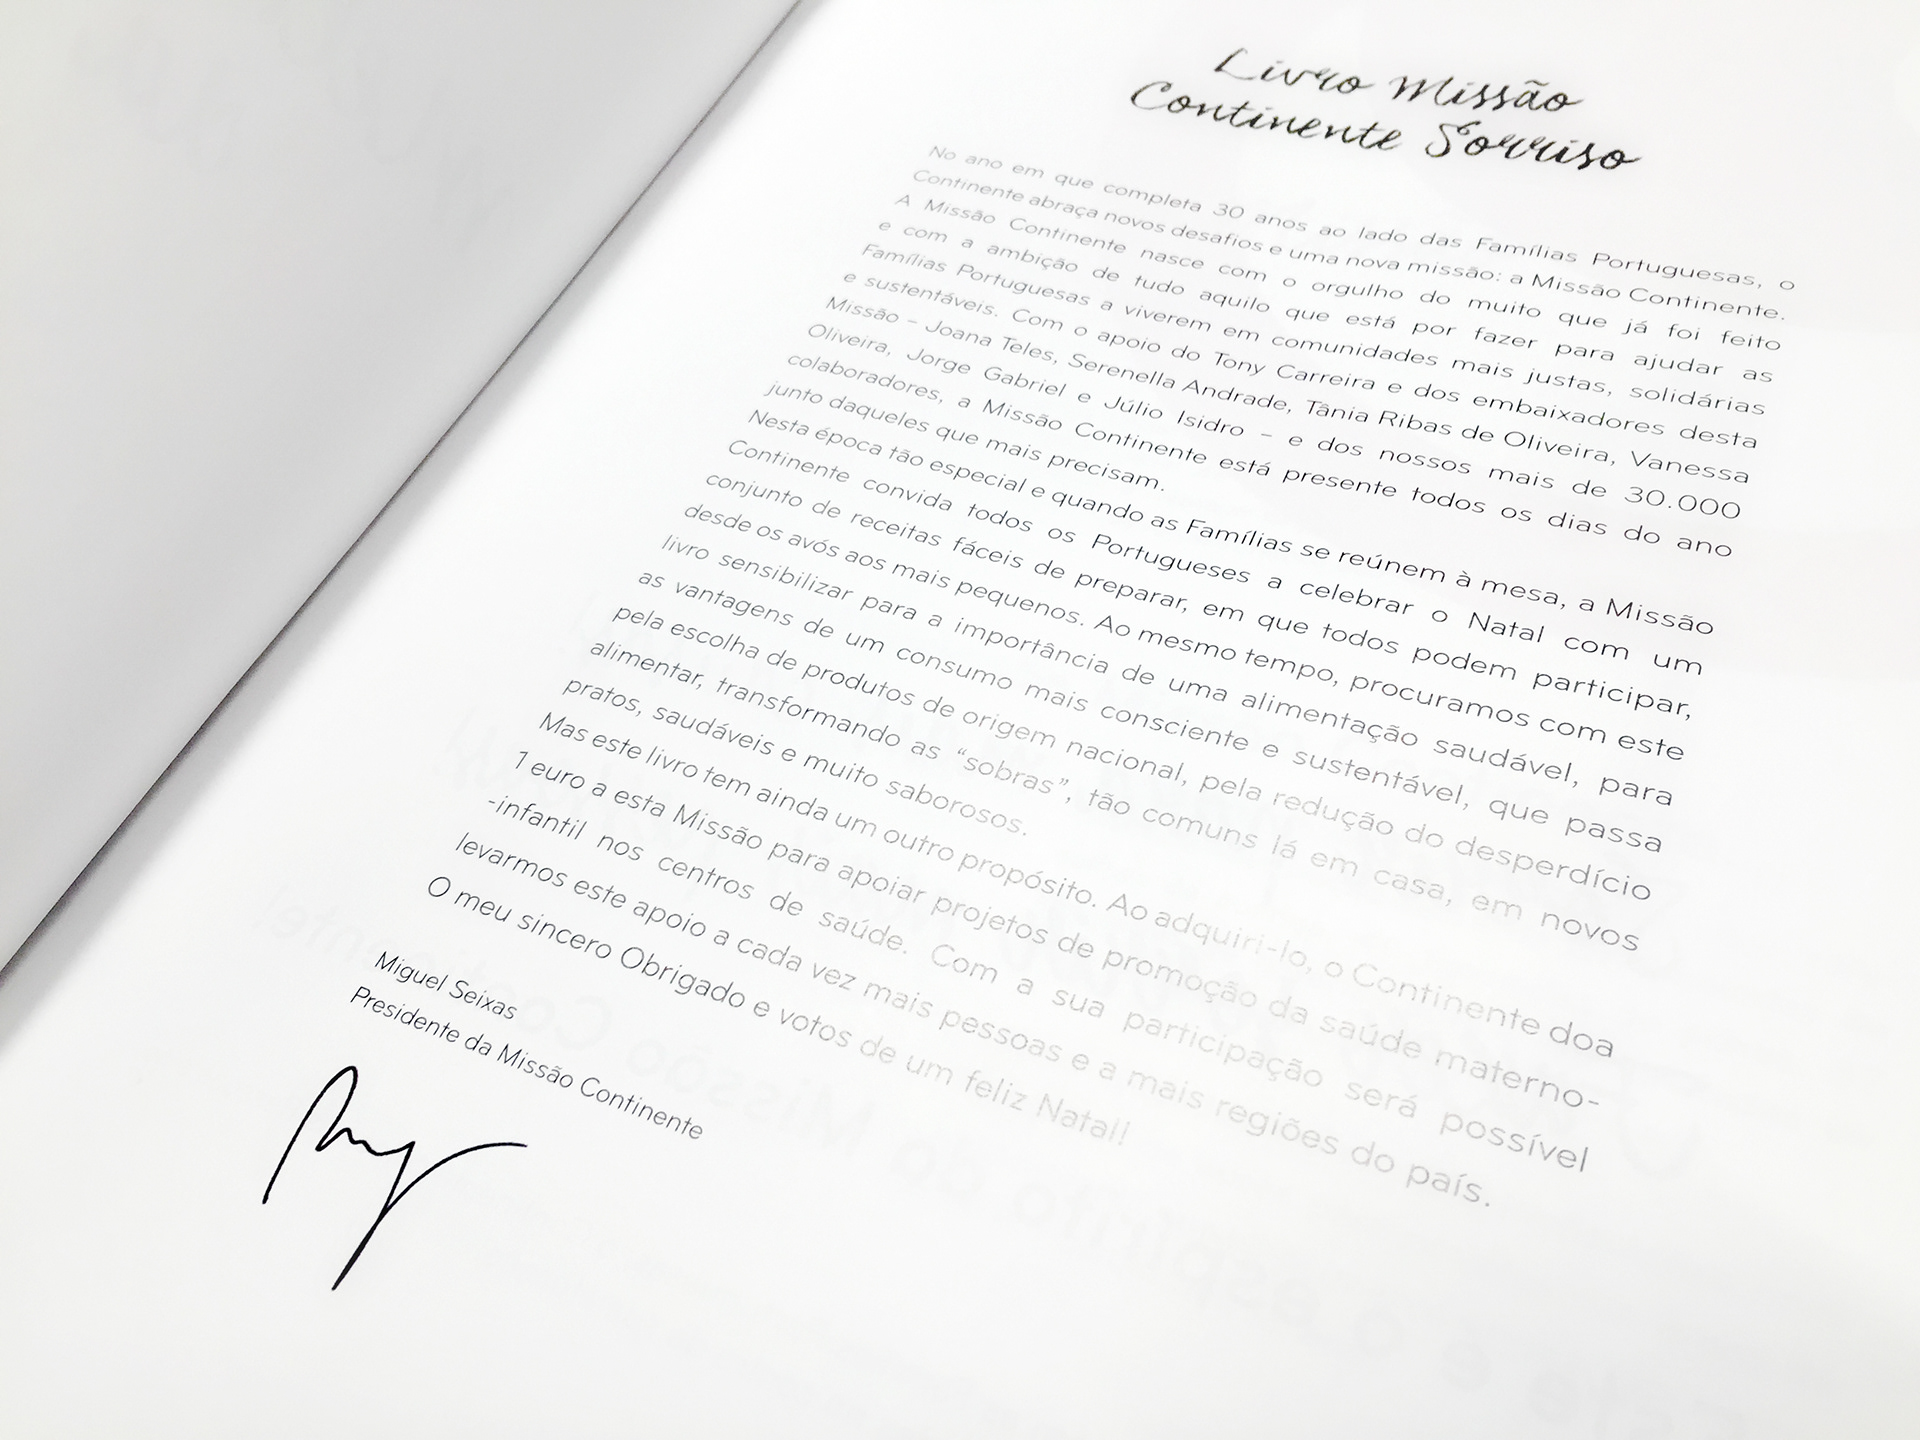 Livro Missão
Continente Sorriso
No ano em que completa 30 anos ao lado das Famílias Portuguesas, o
Continente abraça novos desafios e uma nova missão: a Missão Continente.
A Missão Continente nasce com o orgulho do muito que já foi feito
e com a ambição de tudo aquilo que está por fazer para ajudar as
Famílias Portuguesas a viverem em comunidades mais justas, solidárias
e sustentáveis. Com o apoio do Tony Carreira e dos embaixadores desta
Missão – Joana Teles, Serenella Andrade, Tânia Ribas de Oliveira, Vanessa
Oliveira, Jorge Gabriel e Júlio Isidro – e dos nossos mais de 30.000
colaboradores, a Missão Continente está presente todos os dias do ano
junto daqueles que mais precisam.
Nesta época tão especial e quando as Famílias se reúnem à mesa, a Missão
Continente convida todos os Portugueses a celebrar o Natal com um
conjunto de receitas fáceis de preparar, em que todos podem participar,
desde os avós aos mais pequenos. Ao mesmo tempo, procuramos com este
livro sensibilizar para a importância de uma alimentação saudável, para
as vantagens de um consumo mais consciente e sustentável, que passa
pela escolha de produtos de origem nacional, pela redução do desperdício
alimentar, transformando as “sobras”, tão comuns lá em casa, em novos
pratos, saudáveis e muito saborosos.
Mas este livro tem ainda um outro propósito. Ao adquiri-lo, o Continente doa
1 euro a esta Missão para apoiar projetos de promoção da saúde materno-
-infantil nos centros de saúde. Com a sua participação será possível
levarmos este apoio a cada vez mais pessoas e a mais regiões do país.
O meu sincero Obrigado e votos de um feliz Natal!
Miguel Seixas
Presidente da Missão Continente